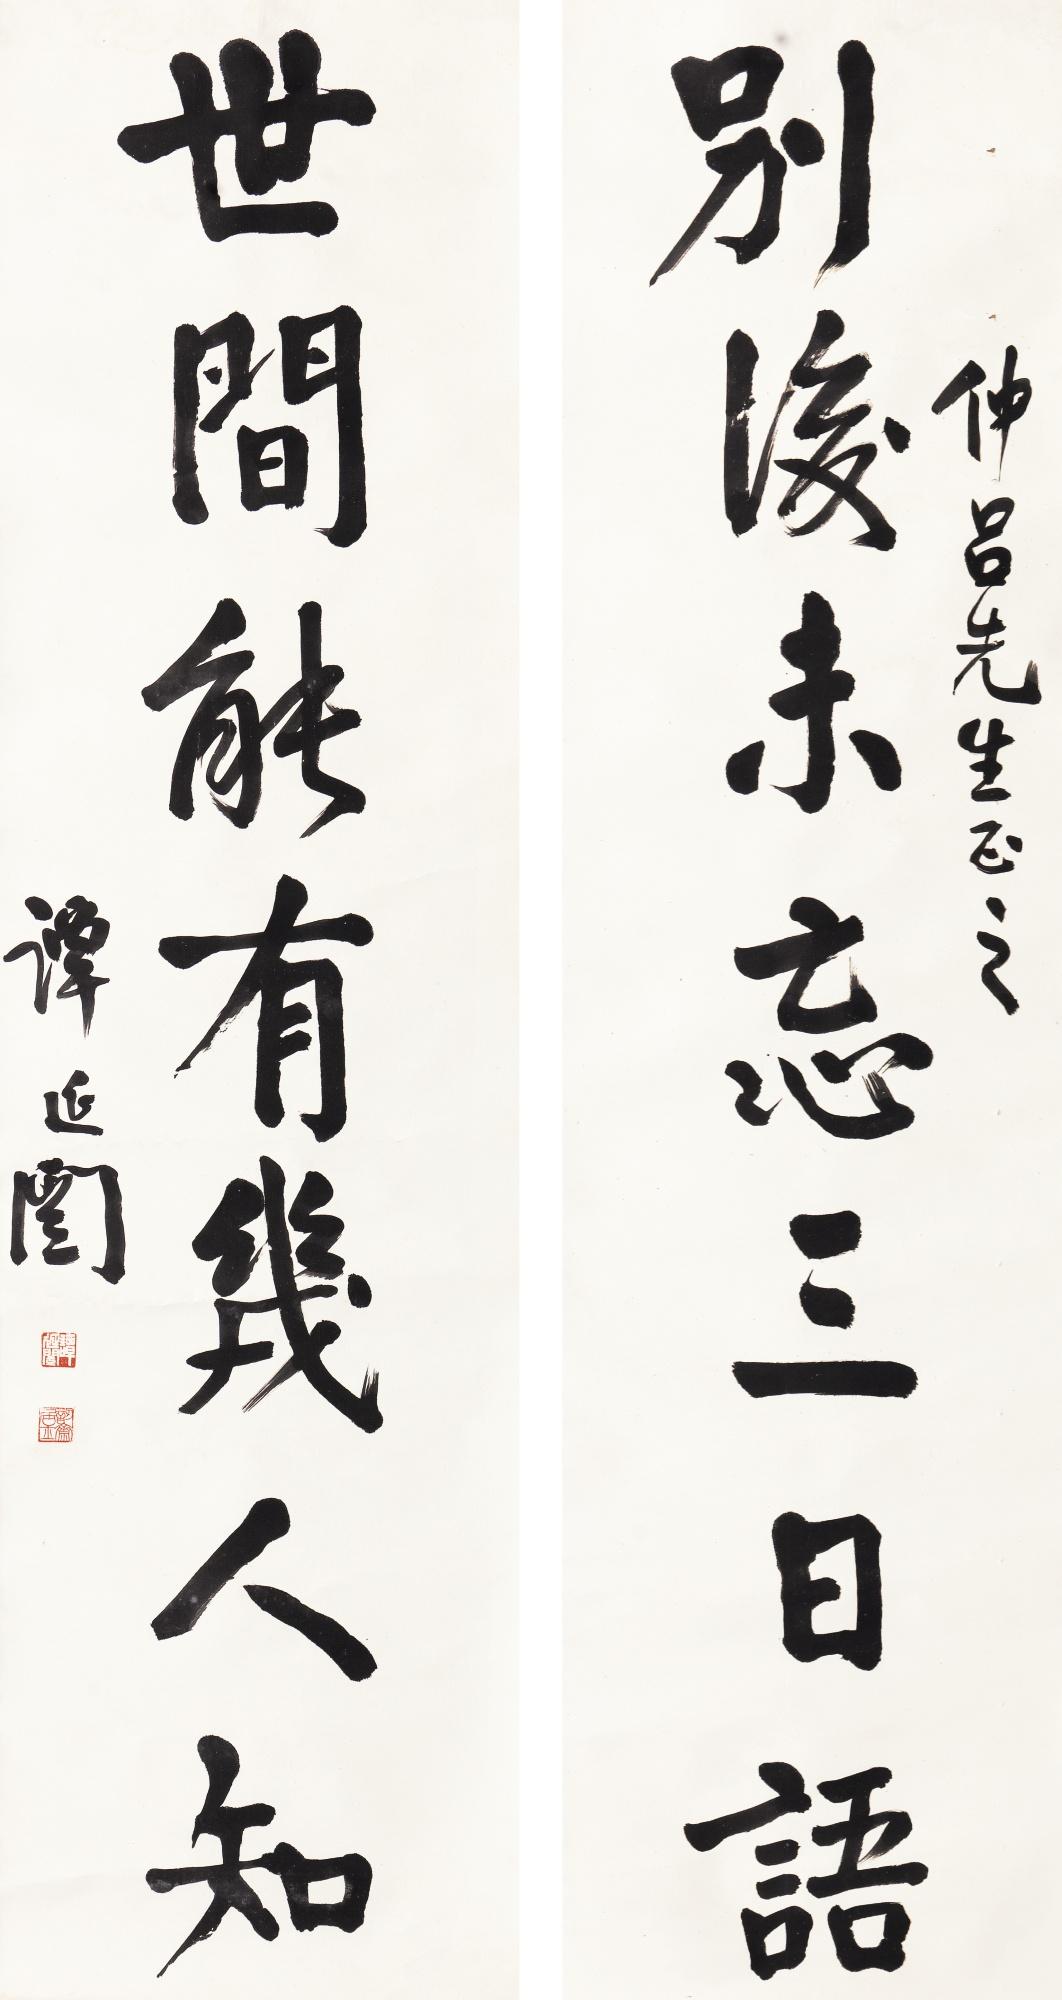 仲吕先生正之
別後未忘三日語
世間能有幾人知
譚延闓